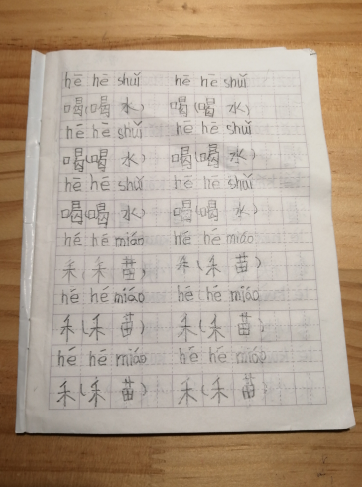 hē hē shuǐ hē hē shuǐ
喝(喝水) 喝(喝水)
hē hē shuǐ hē hē shuǐ
喝(喝水) 喝(喝水)
hē hē shuǐ hē hē shuǐ
喝(喝水) 喝(喝水)
hé hé miáo hé hé miáo
禾(禾苗) 禾(禾苗)
hé hé miáo hé hé miáo
禾(禾苗) 禾(禾苗)
hé hé miáo hé hé miáo
禾(禾苗) 禾(禾苗)